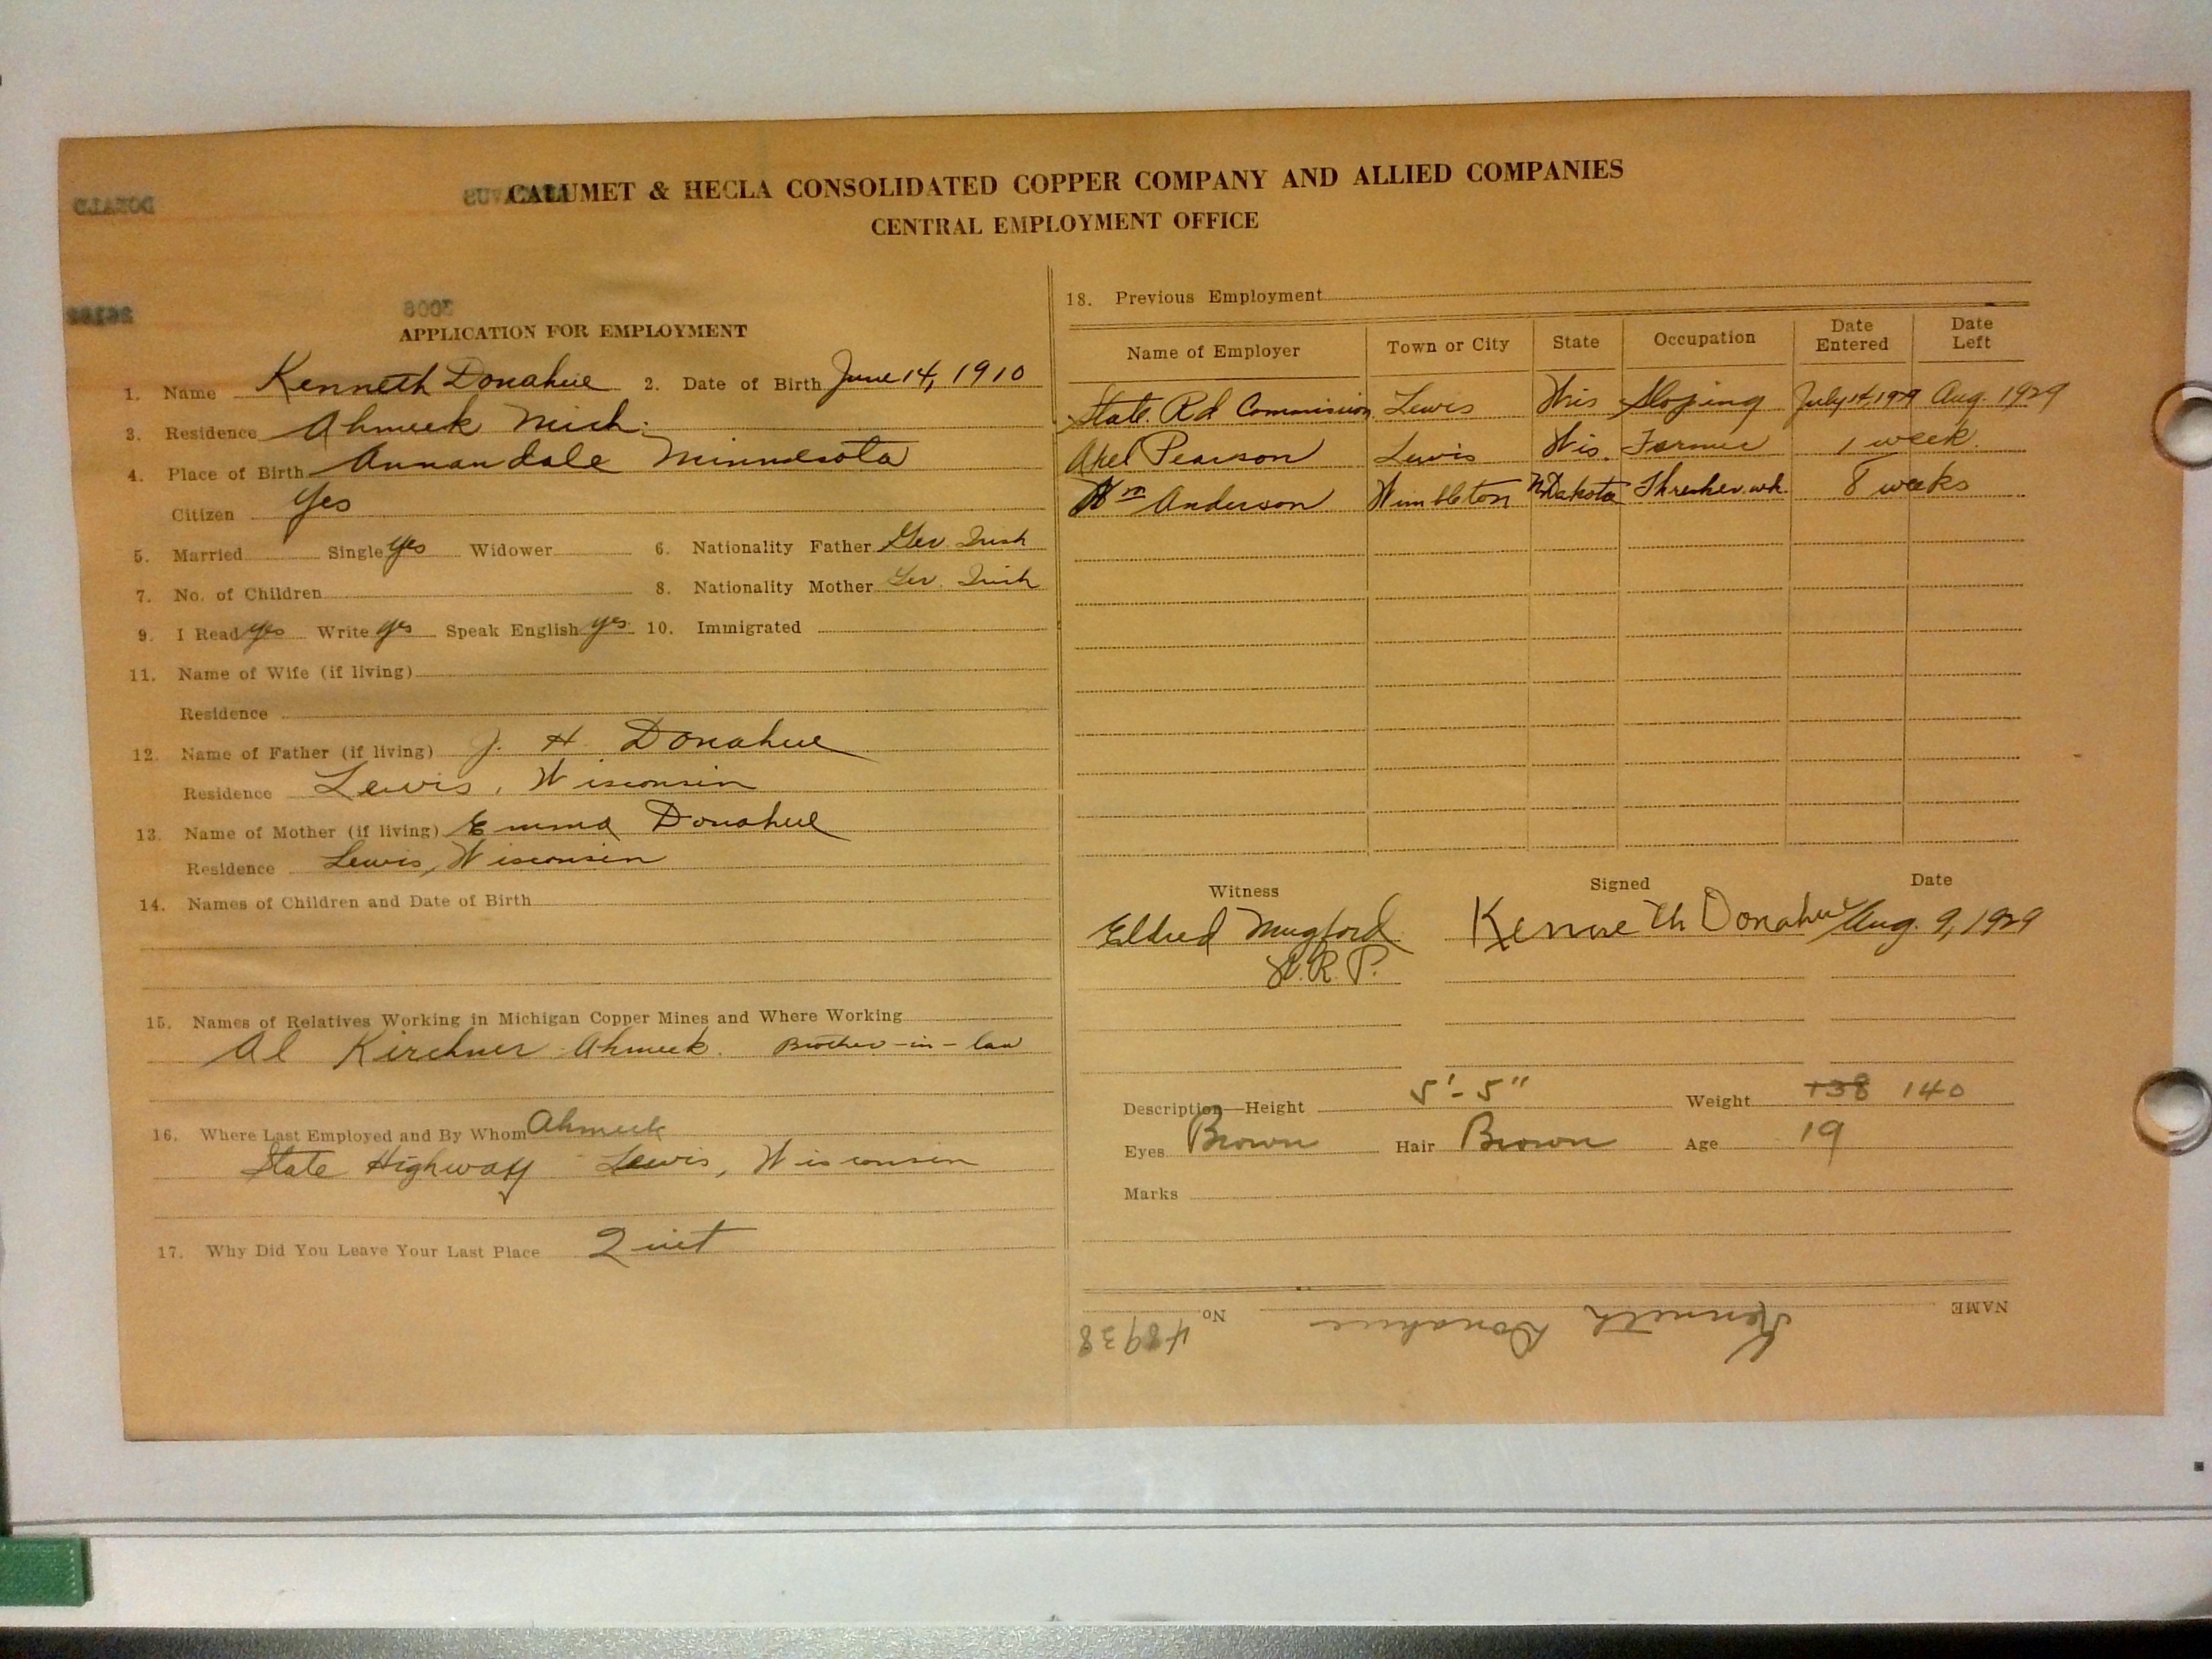 CALUMET & HECLA CONSOLIDATED COPPER COMPANY AND ALLIED COMPANIES
CENTRAL EMPLOYMENT OFFICE
DONALD
APPLICATION FOR EMPLOYMENT
1. Name Kenneth Donahue 2. Date of Birth June 14, 1910
3. Residence Ahmeek Mich.
4. Place of Birth Annandale Minnesota
Citizen Yes
5. Married Single yes Widower 6. Nationality Father Ger. Irish
7. No. of Children 8. Nationality Mother Ger. Irish
9. I Read yes Write yes Speak English yes 10. Immigrated
11. Name of Wife (if living)
Residence
12. Name of Father (if living) J. H. Donahue
Residence Lewis, Wisconsin
13. Name of Mother (if living) Emma Donahue
Residence Lewis, Wisconsin
14. Names of Children and Date of Birth
15. Names of Relatives Working in Michigan Copper Mines and Where Working
Al Kirchner Ahmeek. Brother-in-law
16. Where Last Employed and By Whom Ahmeek
State Highway Lewis, Wisconsin
17. Why Did You Leave Your Last Place Quit
18. Previous Employment
Name of Employer Town or City State Occupation Date Entered Date Left
State Rd Commission Lewis Wis Sloping July 14, 1929 Aug. 1929
Axel Pearson Lewis Wis. Farmer 1 week
Wm Anderson Wimbleton N.Dakota Thresher wk. 8 weeks
Witness Signed Date
Eldred Mugford Kenneth Donahue Aug. 9, 1929
R.P.
Description—Height 5'-5" Weight 138 140
Eyes Brown Hair Brown Age 19
Marks
NAME Kenneth Donahue No. 48938